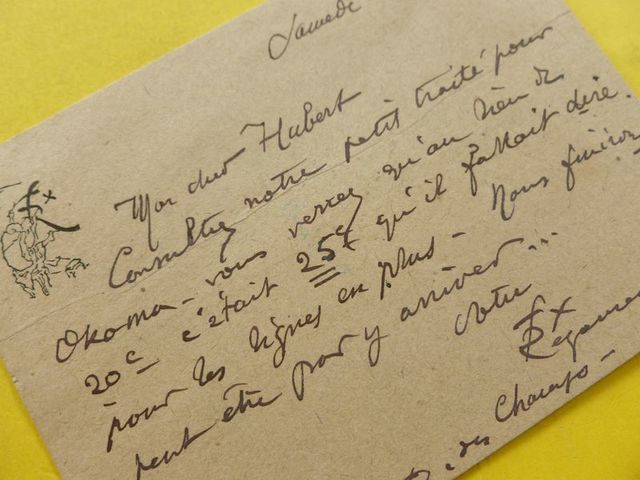 Samedi
Mon cher Hubert
Consultez notre petit traité pour
Okoma - vous verrez qu'au lieu de
20c c'était 25c qu'il fallait dire
pour les lignes en plus - Nous finirons
peut être par y arriver ...
Votre
Fx Regamey
des Champs -